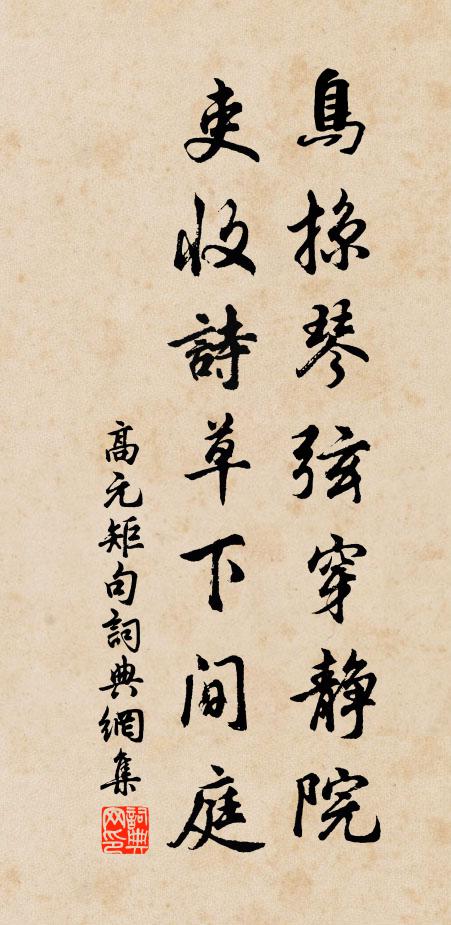 鳥掠琴弦穿静院
吏收詩草下间庭
高元矩句詞典網集
詞典网印